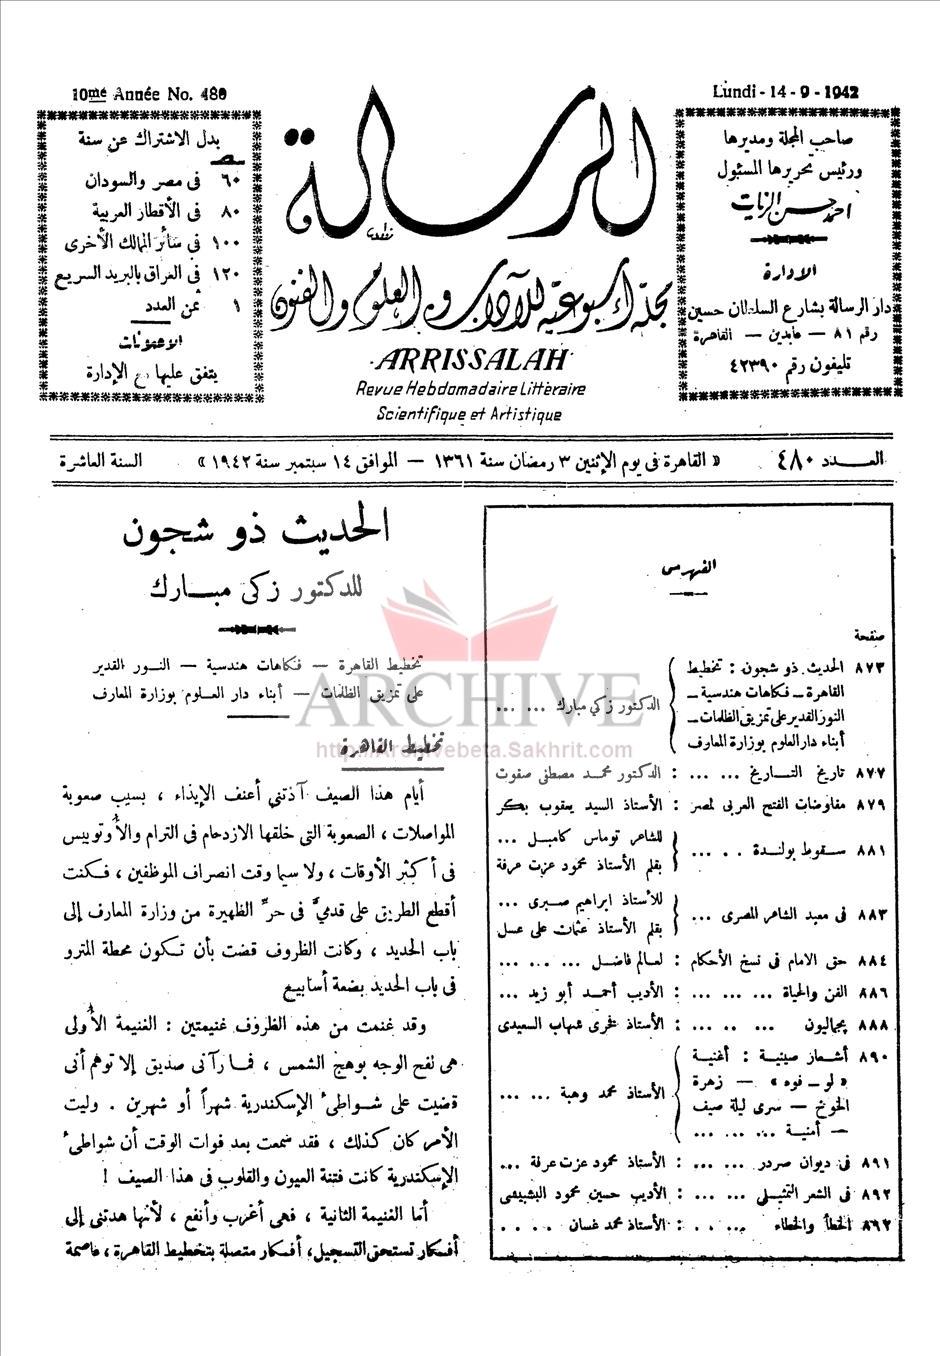 10me Année No. 480
Lundi - 14 - 9 - 1942
صاحب المجلة ومديرها
ورئيس تحريرها المسئول
احمد حسن الزيات
الادارة
دار الرسالة بشارع السلطان حسين
رقم ٨١ — عابدين — القاهرة
تليفون رقم ٤٢٣٩٠
الرسالة
مجلة أسبوعية للآداب والعلوم والفنون
ARRISSALAH
Revue Hebdomadaire Littéraire
Scientifique et Artistique
بدل الاشتراك عن سنة
٦٠ فى مصر والسودان
٨٠ فى الأقطار العربية
١٠٠ فى سائر الممالك الأخرى
١٢٠ فى العراق بالبريد السريع
١ ثمن العدد
الاعلانات
يتفق عليها مع الإدارة
العـــدد ٤٨٠
« القاهرة فى يوم الإثنين ٣ رمضان سنة ١٣٦١ — الموافق ١٤ سبتمبر سنة ١٩٤٢ »
السنة العاشرة
الفهرس
صفحة
٨٧٣ الحديث ذو شجون : تخطيط
القاهرة ــ فكاهات هندسية ــ
النور القدير على تمزيق الظلمات ــ
أبناء دار العلوم بوزارة المعارف
الدكتور زكي مبارك ... ...
٨٧٧ تاريخ التــاريخ ... ... : الدكتور محمد مصطفى صفوت
٨٧٩ مفاوضات الفتح العربى لمصر : الأستاذ السيد يعقوب بكر
٨٨١ سقوط بولندة . . ...
للشاعر توماس كامبل ...
بقلم الأستاذ محمود عزت عرفة
٨٨٣ فى معبد الشاعر المصرى ...
للأستاذ ابراهيم صبرى ...
بقلم الأستاذ عثمان على عسل
٨٨٤ حق الامام فى نسخ الأحكام : لعالم فاضل ... ... ...
٨٨٦ الفن والحياة ... ... ... : الأديب أحمد أبو زيد ...
٨٨٨ بجماليون ... .. ... : الأستاذ فخرى شهاب السعيدى
٨٩٠ أشعار صينية : أغنية
« لو ــ فوه » — زهرة
الخوخ — سرى ليلة صيف
— أمنية ... ... ...
الأستاذ محمد وهبة ... ...
٨٩١ فى ديوان صردر ... ... : الأستاذ محمود عزت عرفة ...
٨٩٢ فى الشعر التمثيلى ... ... : الأديب حسين محمود البشبيشى
٨٩٢ الخطأ والخطاء ... . . : الأستاذ محمد غسان . . . .
الحديث ذو شجون
للدكتور زكى مبــارك
تخطيط القاهرة — فكاهات هندسية — النـور القدير
على تمزيق الظلمات — أبناء دار العـلوم بوزارة المعارف
تخطيط القاهرة
أيام هذا الصيف آذتنى أعنف الإيذاء ، بسبب صعوبة
المواصلات ، الصعوبة التى خلقها الازدحام فى الترام والأوتوبيس
فى أكثر الأوقات ، ولا سيما وقت انصراف الموظفين ، فكنت
أقطع الطريق على قدمىَّ فى حرِّ الظهيرة من وزارة المعارف إلى
باب الحديد ، وكانت الظروف قضت بأن تكون محطة المترو
فى باب الحديد بضعة أسابيع
وقد غنمت من هذه الظروف غنيمتين : الغنيمة الأولى
هى لفح الوجه بوهج الشمس ، فما رآنى صديق إلا توهم أنى
قضيت على شواطئ الإسكندرية شهراً أو شهرين . وليت
الأمر كان كذلك ، فقد سمعت بعد فوات الوقت أن شواطئ
الإسكندرية كانت فتنة العيون والقلوب فى هذا الصيف !
أما الغنيمة الثانية ، فهى أغرب وأنفع ، لأنها هدتنى إلى
أفكار تستحق التسجيل، أفكار متصلة بتخطيط القاهرة، عاصمة
ARCHIVE
http://Archivebeta.Sakhrit.com